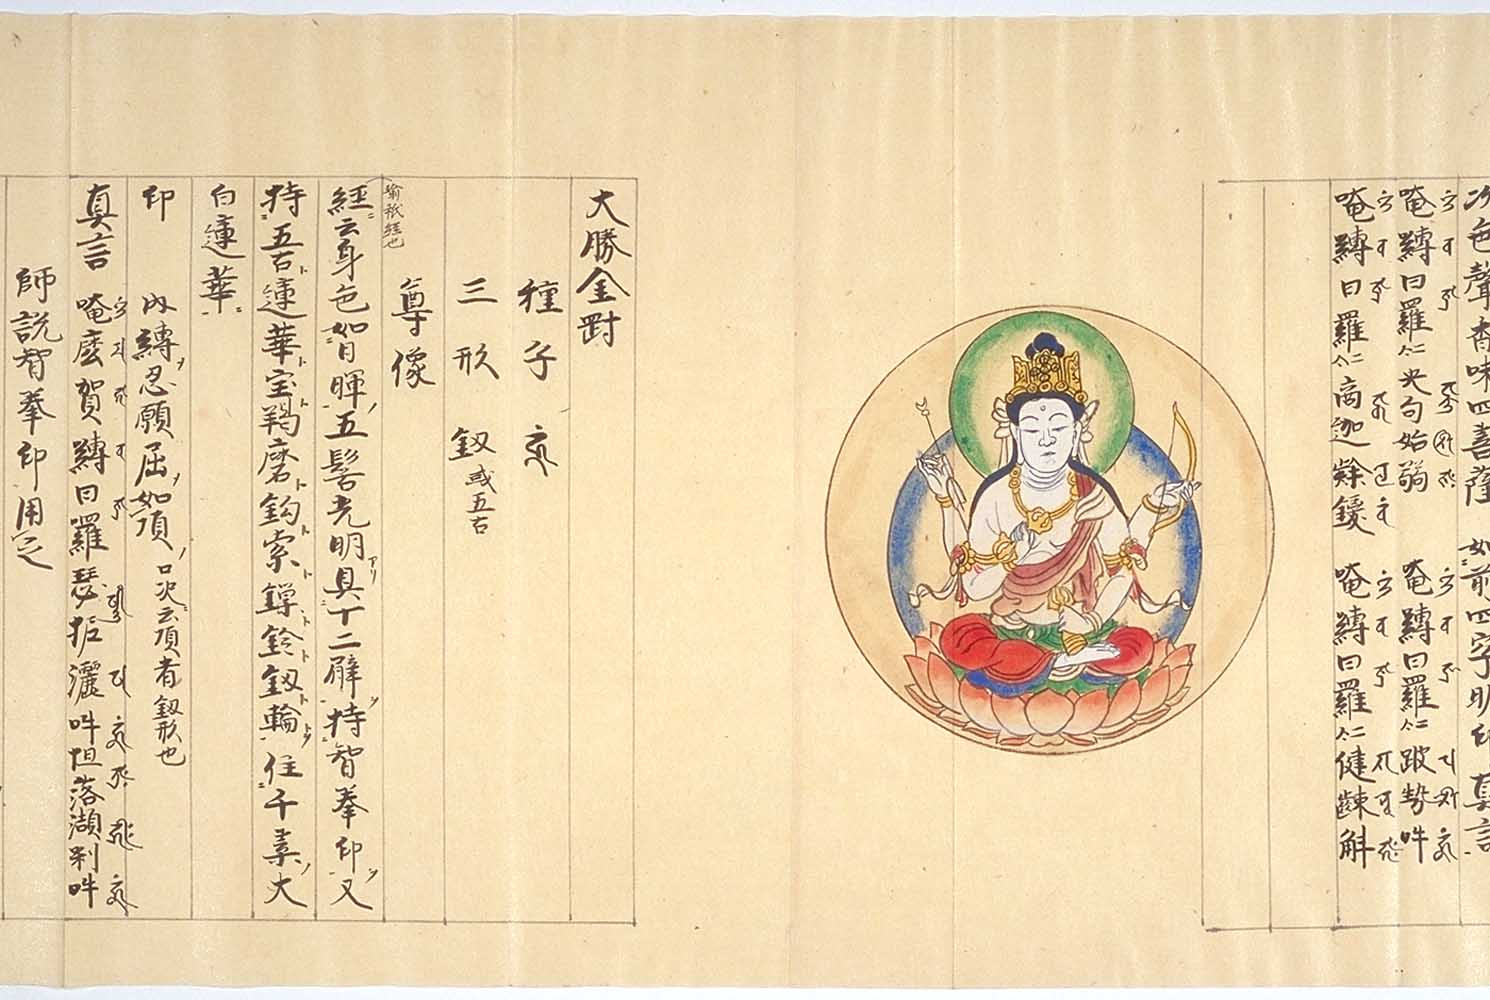 次色聲香味四喜薩 如前四字明印 真言
唵縛曰羅二合央句始弱 唵縛曰羅二合跛勢吽
唵縛曰羅二合商迦𨽻鑁 唵縛曰羅二合健𨽻斛
大勝金剛
種子 𑖮𑖳𑖽
三形 釼或五古
尊像
瑜祇経也
經云身色如日暉五髻光明具十二臂持智拳印又
持五古蓮華宝羯磨鈎索鏁鈴釼輪住千葉大
白蓮華
印 内縛忍願屈如頂 口决云頂者釼形也
真言 唵麼賀縛曰羅瑟抳灑吽怛落纈利吽
師説智拳印用之